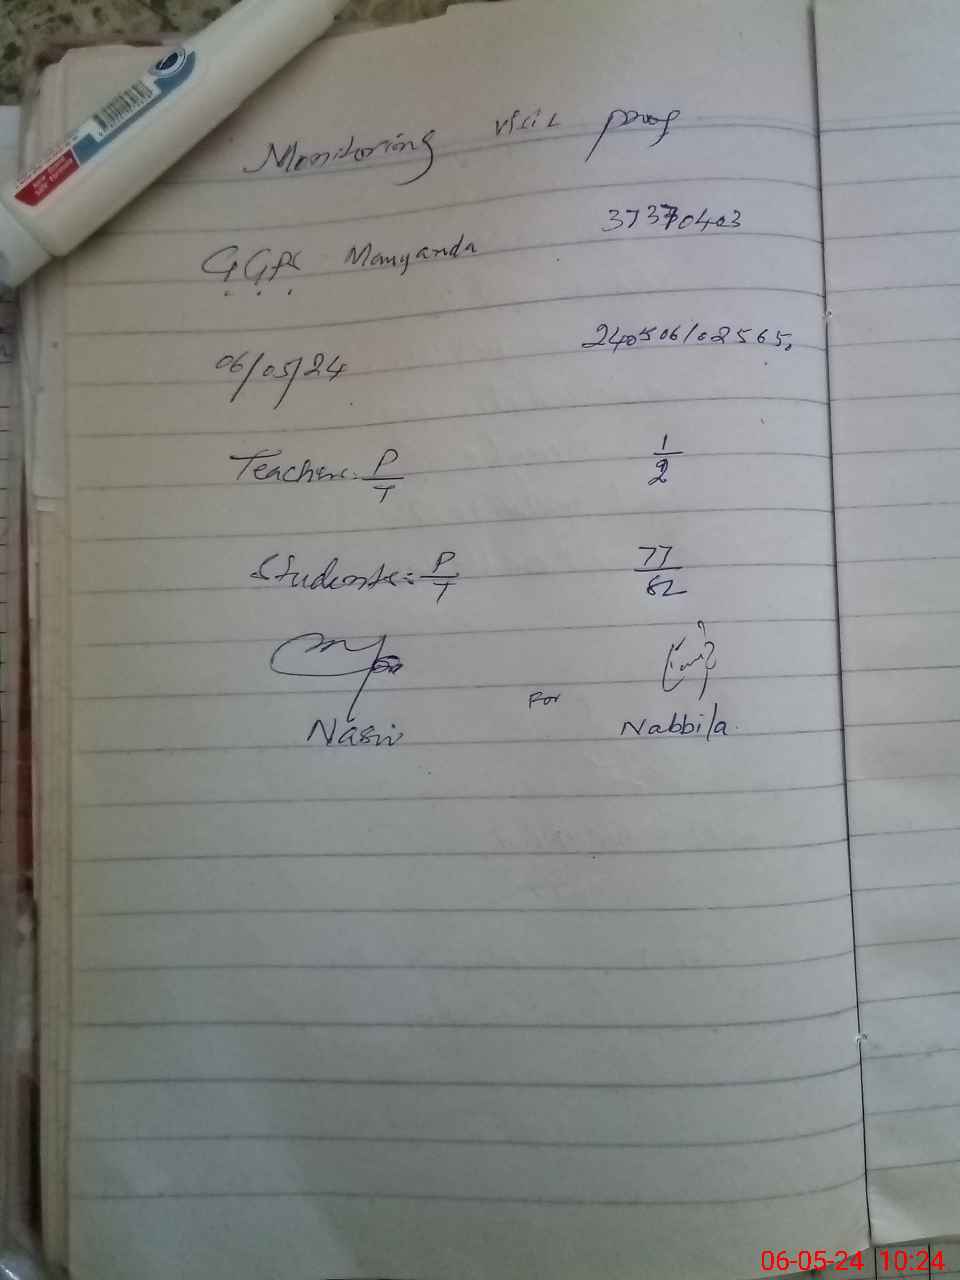 Monitoring visit prog
GGPS Manyanda 37370403
06/05/24 240506102565
Teachers: P/T 1/2
Students: P/T 77/82
Nasir For Nabbila
06-05-24 10:24